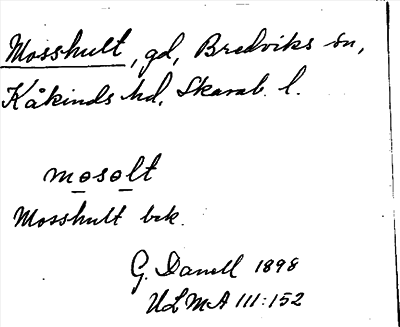 Mosshult, gd, Bredviks sn,
Kåkinds hd, Skarab. l.
mosolt
Mosshult bek.
G. Danell 1898
ULMA 111:152